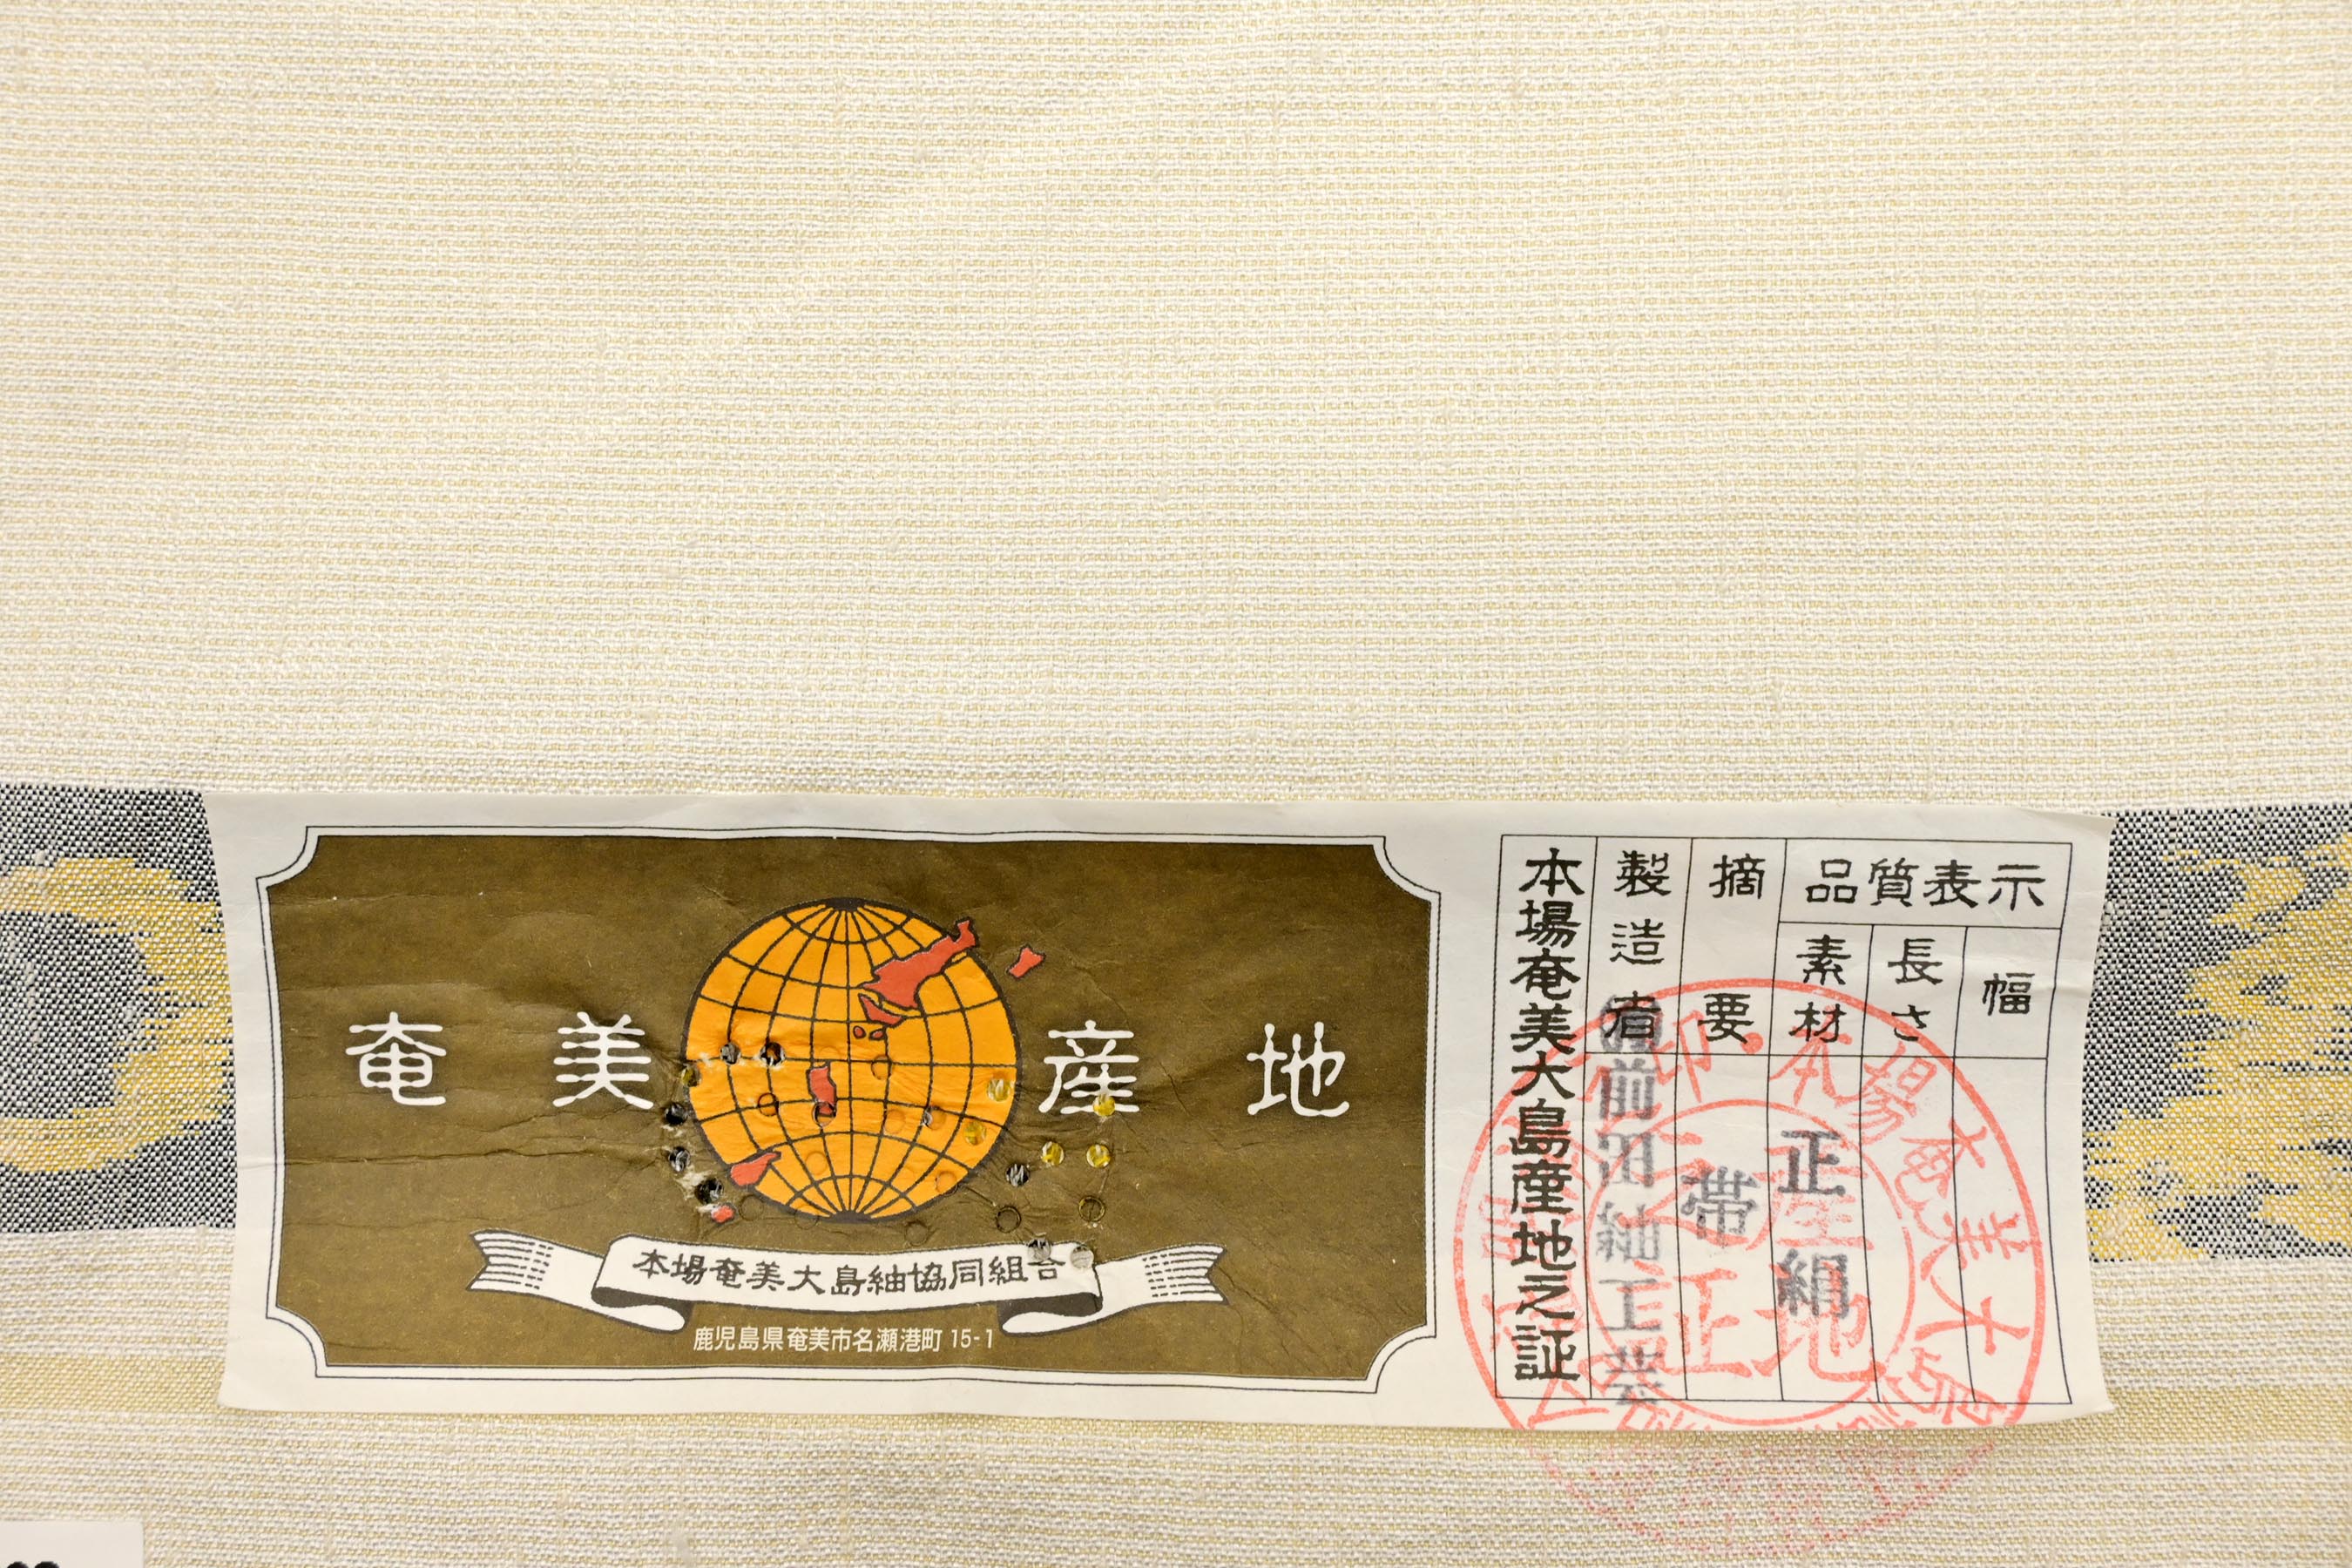 奄美産地
本場奄美大島紬協同組合
鹿児島県奄美市名瀬港町 15-1
本場奄美大島産地之証
製造者
前田紬工芸
摘要
帯
品質表示
素材
正絹
長さ
幅
本場奄美大島